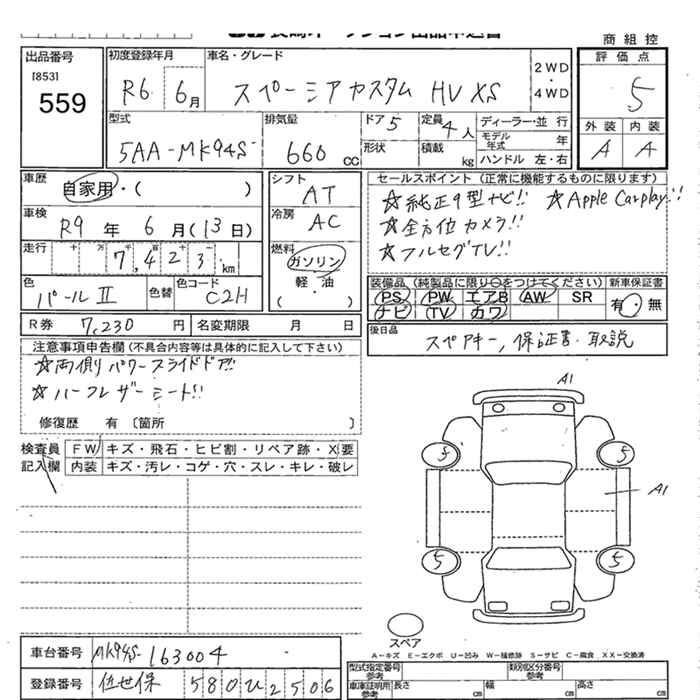 商組控
出品番号 初度登録年月 車名・グレード 評価点
[853] 559 R6 6月 スペーシアカスタム HV XS 2WD・4WD 5
型式 排気量 ドア 5 定員 4人 ディーラー・並行 外装 内装
5AA-MK94S 660cc 形状 積載 kg モデル年式 年 A A
ハンドル 左・右
車歴 自家用・( ) シフト AT セールスポイント(正常に機能するものに限ります)
☆純正9型ナビ!! ☆Apple Carplay!!
車検 R9年6月(13日) 冷房 AC ☆全方位カメラ!!
走行 十 万 千 百 十 7,423km 燃料 ガソリン 軽・油 ( ) ☆フルセグTV!!
色 パールⅡ 色替 色コード C2H 装備品(純製品に限り○をつけてください) 新車保証書
PS PW エアB AW SR 有・無
ナビ TV カワ
R券 7,230円 名変期限 月 日 後日品 スペアキー,保証書・取説
注意事項申告欄(不具合内容等は具体的に記入して下さい)
☆両側パワースライドドア!!
☆ハーフレザーシート!!
修復歴 有〔箇所 〕
検査員記入欄 FW キズ・飛石・ヒビ割・リペア跡・X要
内装 キズ・汚レ・コゲ・穴・スレ・キレ・破レ
A1
5 5
A1
5 5
スペア
A-キズ E-エクボ U-凹み W-補修跡 S-サビ C-腐食 XX-交換済
車台番号 MK94S-163004 型式指定番号 参考 類別区分番号 参考
登録番号 佐世保 580ひ2506 車庫証明用 参考 長さ cm 幅 cm 高さ cm